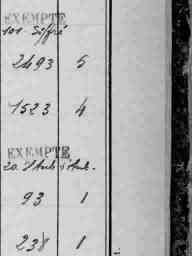 EXEMPTE
101. Siffré
2493 5
1523 4
EXEMPTE
20.
93 1
238 1